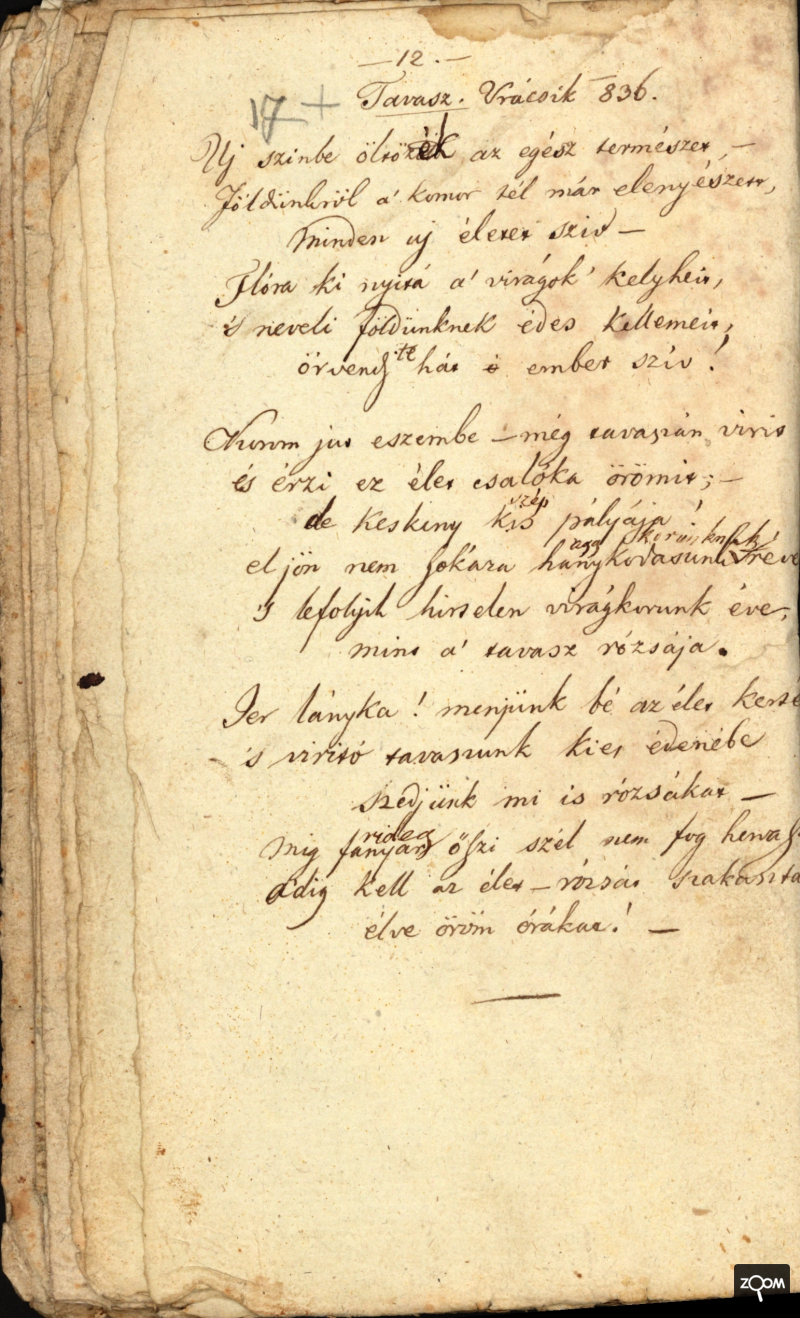 — 12. —
17 +
Tavasz. Vrácsik 836.
Uj szinbe öltözék az egész természet, —
Földünkröl a' komor tél már elenyészett,
Minden uj életet szív —
Flóra ki nyitá a' virágok' kelyheit,
's neveli földünknek édes kellemeit,
örvendj te hát ó ember szív!
Korom jut eszembe — még tavaszán virít
és érzi ez élet csalóka örömit; —
szép
de keskeny kis pályája!
agg korunknak
eljön nem sokára hánykodasunk réve
's lefolyik hirtelen virágkorunk éve,
mint a' tavasz rózsája.
Jer lányka! menjünk bé az élet kerté
's virító tavaszunk kies édenébe
szedjünk mi is rózsákat —
rideg
Mig fanyar öszi szél nem fog hervasz
adig kell az élet — rózsát szakaszta
élve öröm órákat! —
ZOOM